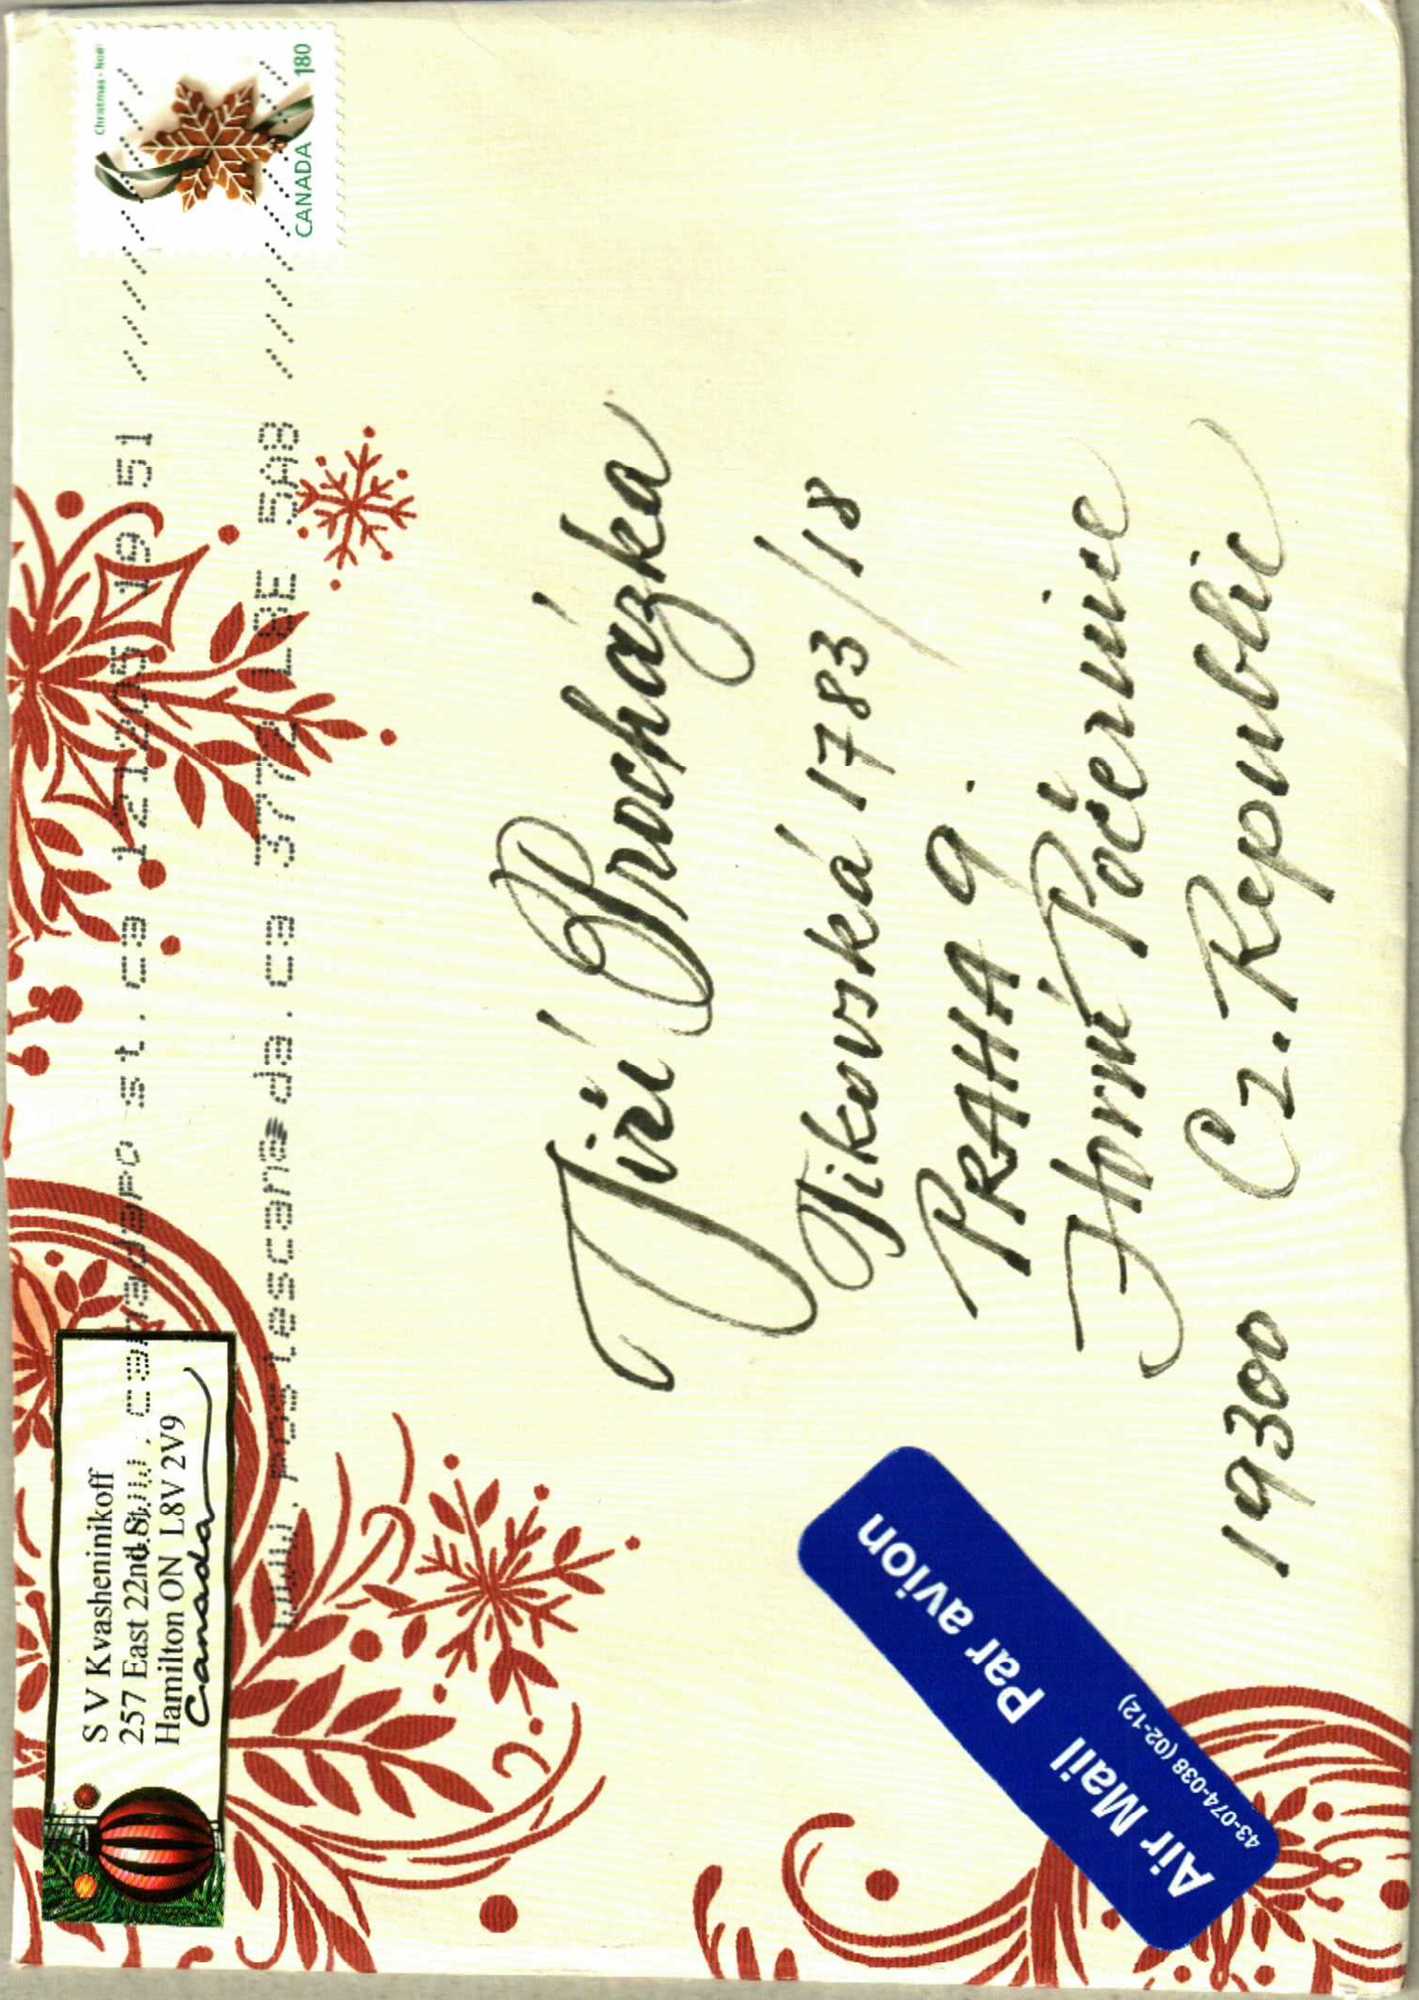 S V Kvasheninikoff
257 East 22nd St.
Hamilton ON L8V 2V9
Canada
www.canadapost.ca 121205 19:51
www.postescanada.ca 3772 L8E 5A8
Christmas · Noël
CANADA
180
Jiří Procházka
Jikovská 1783/18
PRAHA 9.
Horní Počernice
19300 Cz. Republic
Air Mail Par avion
43-074-038 (02-12)